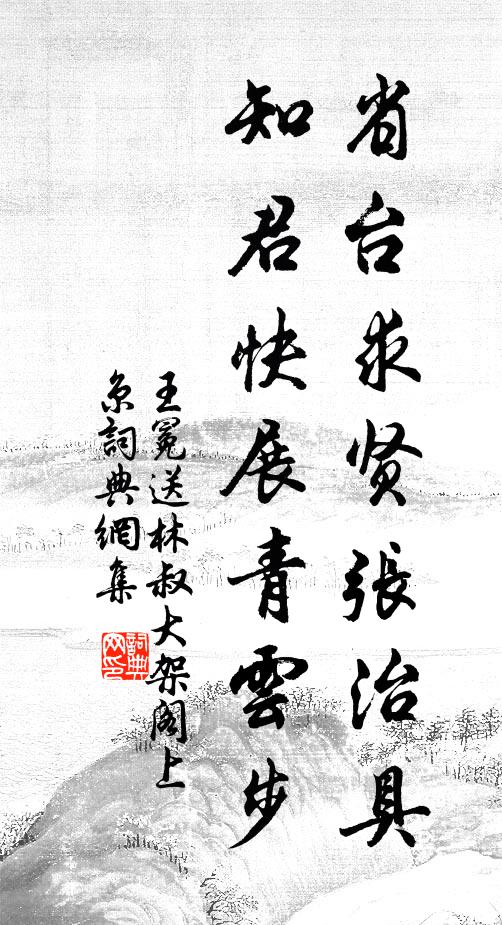 省台求贤張治具
知君快展青雲步
王冕送林叔大架阁上
京詞典網集
詞典网印